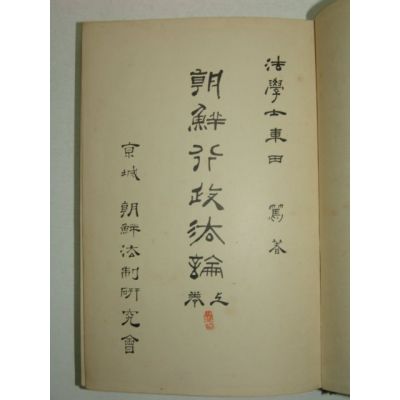 法學士車田 篤著
朝鮮行政法論 上卷
京城 朝鮮法制研究會